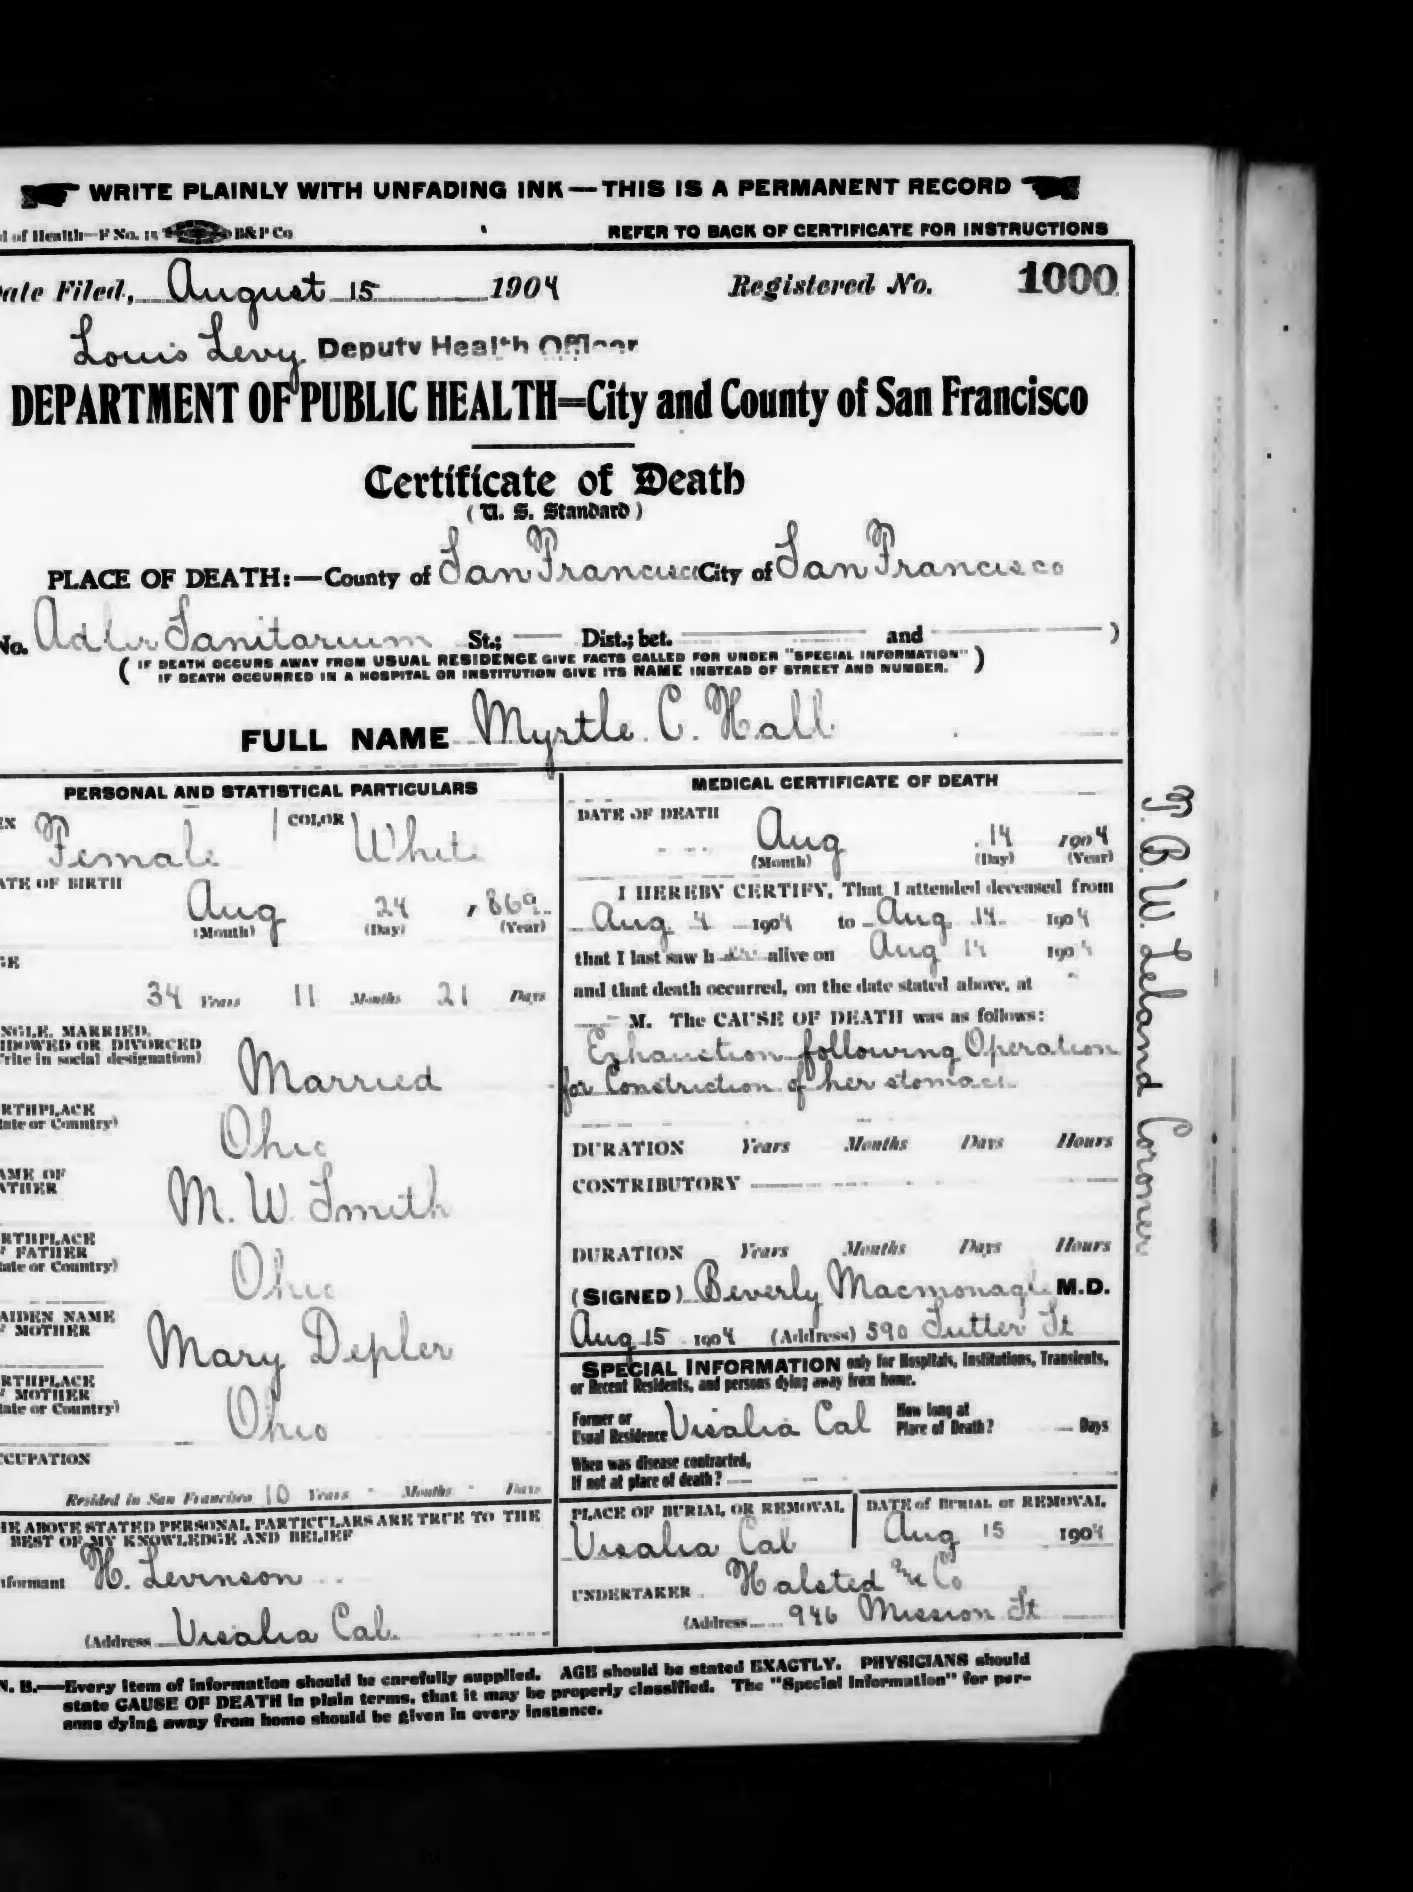 WRITE PLAINLY WITH UNFADING INK—THIS IS A PERMANENT RECORD
d of Health—F No. 15 B&P Co REFER TO BACK OF CERTIFICATE FOR INSTRUCTIONS
ate Filed, August 15 1904 Registered No. 1000
Louis Levy Deputy Health Officer
DEPARTMENT OF PUBLIC HEALTH=City and County of San Francisco
Certificate of Death
( U. S. Standard )
PLACE OF DEATH:—County of San Francisco City of San Francisco
No. Adler Sanitarium St.; — Dist.; bet. — and — )
( IF DEATH OCCURS AWAY FROM USUAL RESIDENCE GIVE FACTS CALLED FOR UNDER "SPECIAL INFORMATION" )
IF DEATH OCCURRED IN A HOSPITAL OR INSTITUTION GIVE ITS NAME INSTEAD OF STREET AND NUMBER.
FULL NAME Myrtle C. Hall
PERSONAL AND STATISTICAL PARTICULARS
EX Female COLOR White
ATE OF BIRTH
Aug 24 , 869
(Month) (Day) (Year)
GE
34 Years 11 Months 21 Days
NGLE, MARRIED,
IDOWED OR DIVORCED
rite in social designation)
Married
RTHPLACE
tate or Country)
Ohio
AME OF
ATHER
M. W. Smith
RTHPLACE
F FATHER
tate or Country)
Ohio
AIDEN NAME
F MOTHER
Mary Depler
RTHPLACE
F MOTHER
tate or Country)
Ohio
CCUPATION
Resided in San Francisco 10 Years - Months - Days
HE ABOVE STATED PERSONAL PARTICULARS ARE TRUE TO THE
BEST OF MY KNOWLEDGE AND BELIEF
nformant H. Levinson
(Address Visalia Cal.
MEDICAL CERTIFICATE OF DEATH
DATE OF DEATH
Aug 14 1904
(Month) (Day) (Year)
I HEREBY CERTIFY, That I attended deceased from
Aug 4 1904 to Aug 14 1904
that I last saw h er alive on Aug 14 1904
and that death occurred, on the date stated above, at
M. The CAUSE OF DEATH was as follows:
Exhaustion following Operation
for Constriction of her stomach
DURATION Years Months Days Hours
CONTRIBUTORY
DURATION Years Months Days Hours
(SIGNED) Beverly Macmonagle M.D.
Aug 15 1904 (Address) 590 Sutter St
SPECIAL INFORMATION only for Hospitals, Institutions, Transients,
or Recent Residents, and persons dying away from home.
Former or
Usual Residence Visalia Cal How long at
Place of Death? — Days
When was disease contracted,
If not at place of death?
PLACE OF BURIAL OR REMOVAL DATE of BURIAL or REMOVAL
Visalia Cal Aug 15 1904
UNDERTAKER Halsted & Co
(Address 946 Mission St
N. B.—Every item of information should be carefully supplied. AGE should be stated EXACTLY. PHYSICIANS should
state CAUSE OF DEATH in plain terms, that it may be properly classified. The "Special Information" for per-
sons dying away from home should be given in every instance.
T. B. W. Leland Coroner